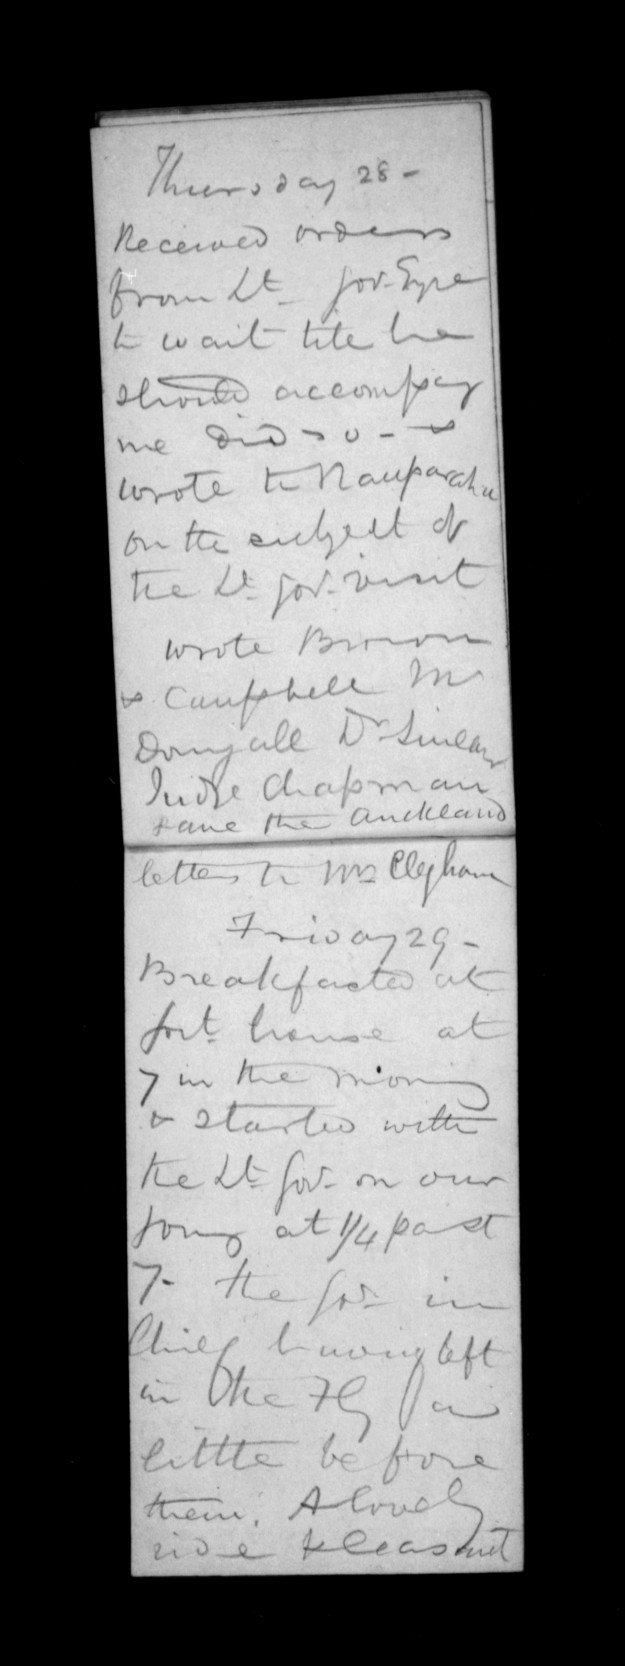 Thursday 28 -
Received orders
from Lt. Gov. Eyre
to wait till he
should accompany
me did so - &
wrote to Rauparaha
on the subject of
the Lt. Gov. visit
wrote Brown
& Campbell Mc
Dougall Dr Sinclair
Judge Chapman
& the Auckland
letters to Mr Cleghorn
Friday 29 -
Breakfasted at
Govt. house at
7 in the morning
& started with
the Lt. Gov. on our
journy at 1/4 past
7 - the Gov. in
Chief having left
in the Fly a
little before
them. A lovely
ride & pleasant